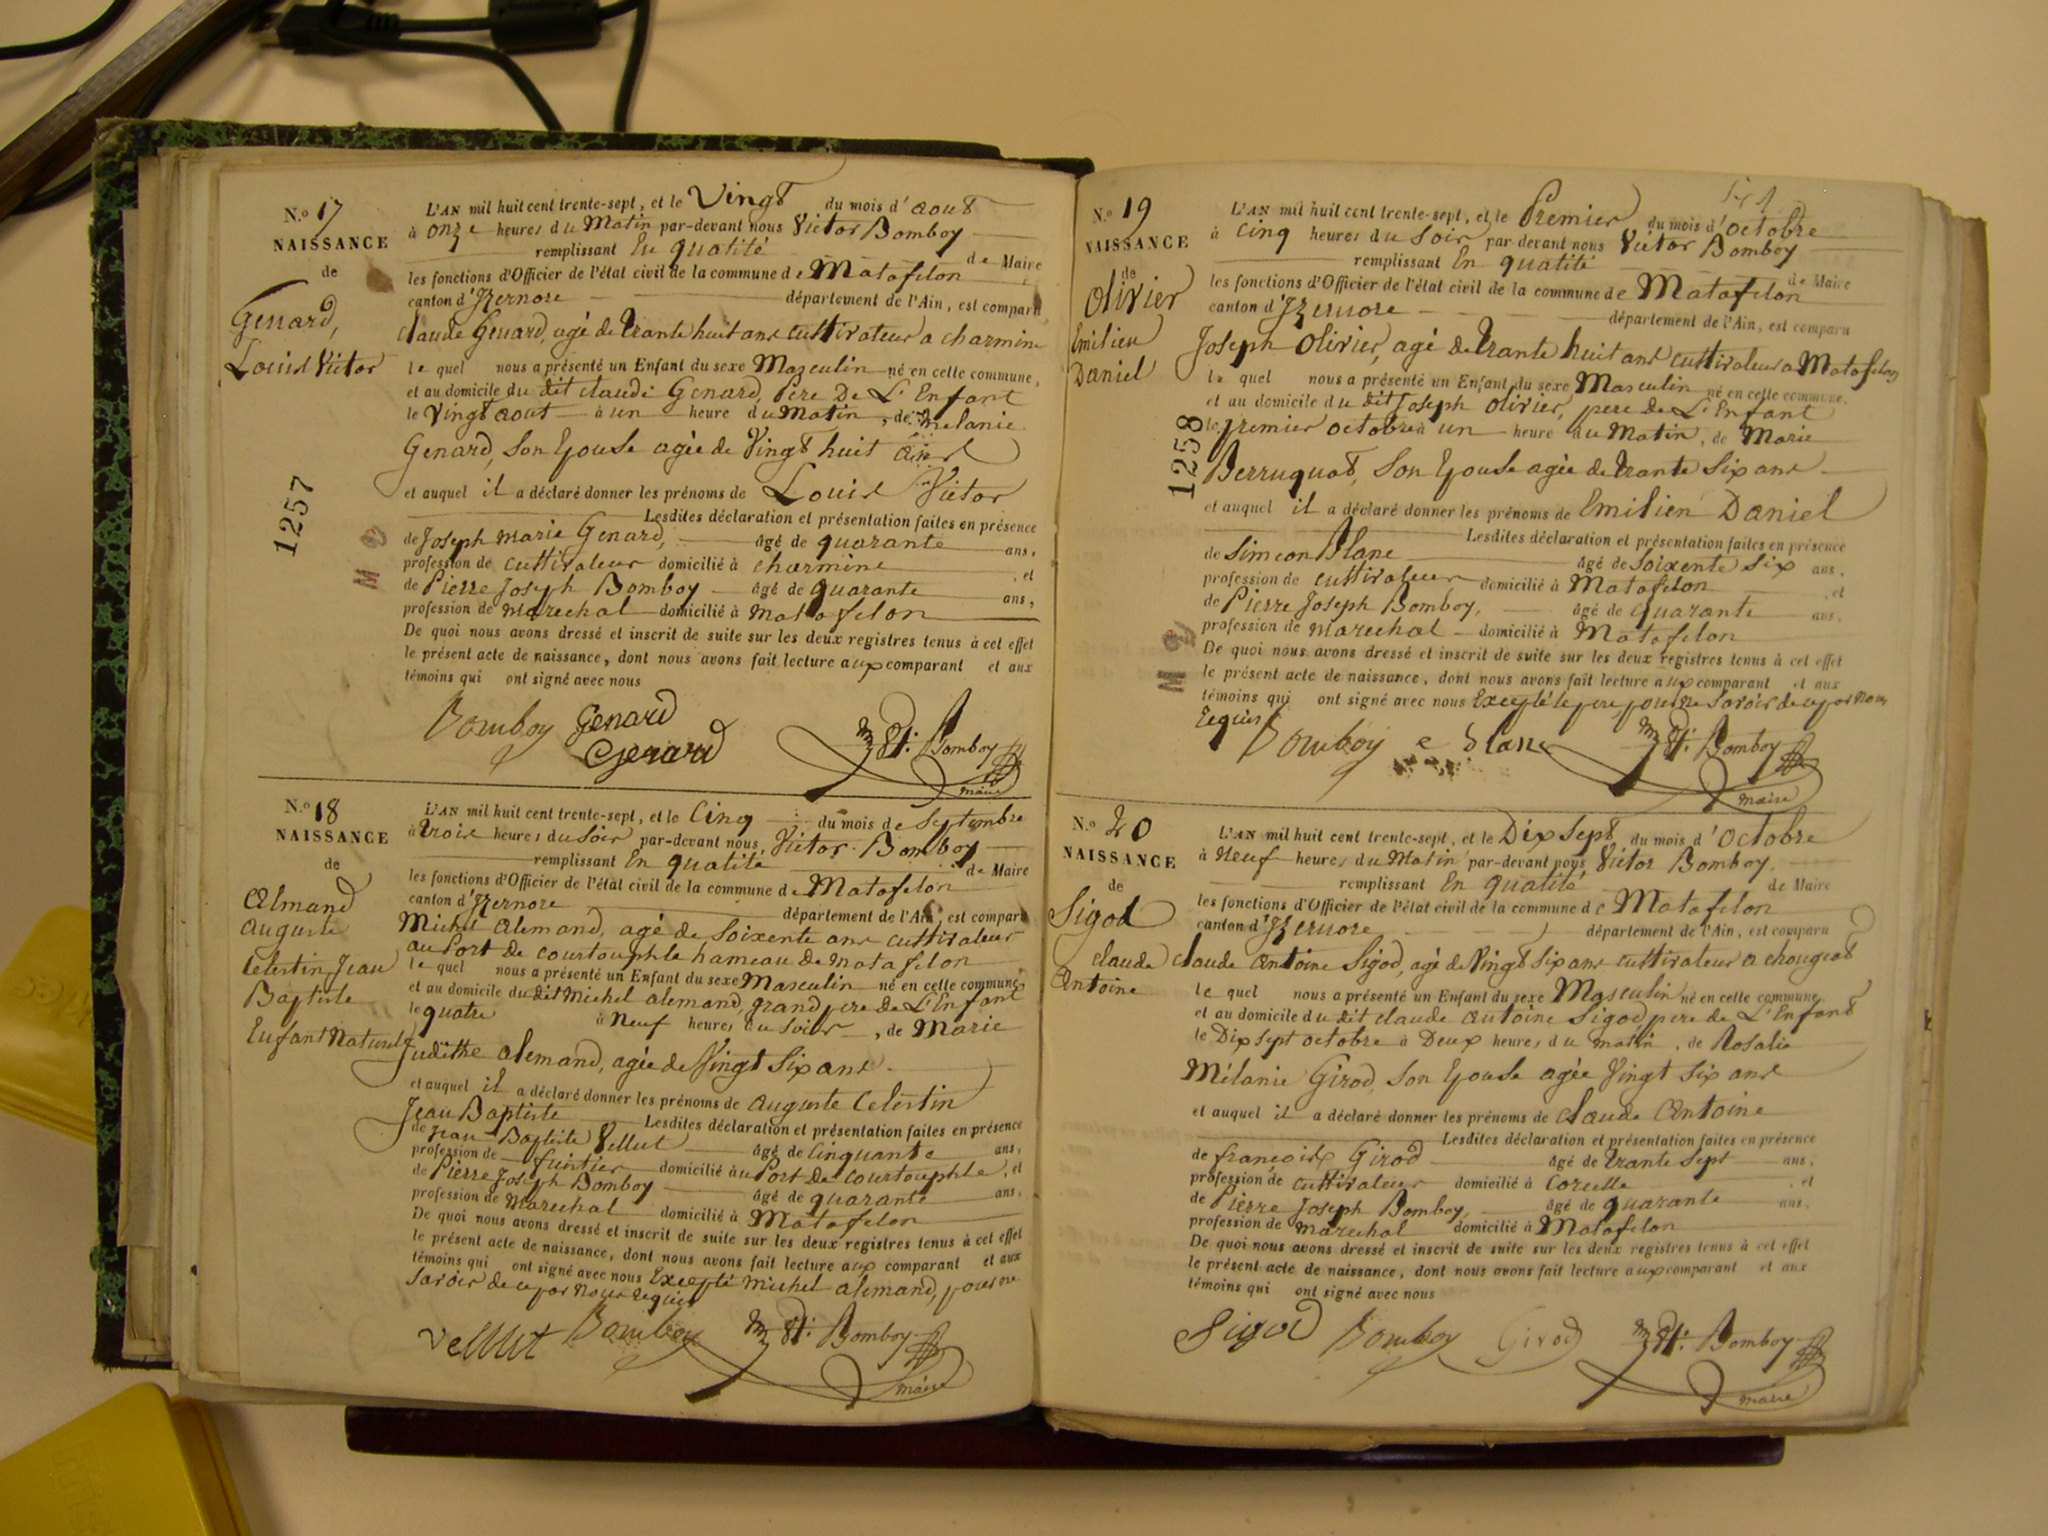 N.o 17
NAISSANCE
de
Genard,
Louis Victor
1257
L'AN mil huit cent trente-sept, et le Vingt du mois d'aout
à onze heures du Matin par-devant nous Victor Bomboy
remplissant En qualité de Maire
les fonctions d'Officier de l'état civil de la commune de Matafelon
canton d'Izernore département de l'Ain, est comparu
Claude Genard, agé de trante huit ans cuttivateur a charmine
le quel nous a présenté un Enfant du sexe Mazculin né en cette commune,
et au domicile du dit claude Genard, Pere De L'Enfant
le Vingt aout à un heure du Matin, de melanie
Genard, Son Epouse agée de Vingt huit ans
et auquel il a déclaré donner les prénoms de Louis Victor
Lesdites déclaration et présentation faites en présence
de Joseph marie Genard, âgé de quarante ans,
profession de cuttivateur domicilié à charmine, et
de Pierre Joseph Bomboy âgé de quarante ans,
profession de marechal domicilié à Matafelon
De quoi nous avons dressé et inscrit de suite sur les deux registres tenus à cet effet
le présent acte de naissance, dont nous avons fait lecture aux comparant et aux
témoins qui ont signé avec nous
Bomboy Genard
Genard
Bomboy
maire
N.o 18
NAISSANCE
de
Alemand
Auguste
Celestin Jean
Baptiste
Enfant Naturel
L'AN mil huit cent trente-sept, et le Cinq du mois de Septembre
à trois heures du Soir par-devant nous, Victor Bomboy
remplissant En qualité de Maire
les fonctions d'Officier de l'état civil de la commune de Matafelon
canton d'Izernore département de l'Ain, est comparu
Michel Alemand, agé de Soixente ans cuttivateur
au Port de courtouphle hameau de matafelon
le quel nous a présenté un Enfant du sexe Masculin né en cette commune,
et au domicile du dit Michel alemand, grand pere de L'Enfant
le quatre à Neuf heures du Soir, de Marie
Judithe alemand, agée de Vingt Six ans
et auquel il a déclaré donner les prénoms de auguste Celestin
Jean Baptiste Lesdites déclaration et présentation faites en présence
de Jean Baptiste Vellut âgé de Cinquante ans,
profession de domicilié au Port de Courtouphle, et
de Pierre Joseph Bomboy âgé de quarante ans,
profession de Marechal domicilié à Matafelon
De quoi nous avons dressé et inscrit de suite sur les deux registres tenus à cet effet
le présent acte de naissance, dont nous avons fait lecture aux comparant et aux
témoins qui ont signé avec nous Excepté Michel alemand, pour ne
Savoir de ce par Nous requis
Vellut Bomboy Bomboy
maire
N.o 19
NAISSANCE
de
Olivier
Emilien
Daniel
1258
L'AN mil huit cent trente-sept, et le Premier du mois d'octobre
à Cinq heures du Soir par-devant nous Victor Bomboy
remplissant En qualité de Maire
les fonctions d'Officier de l'état civil de la commune de Matafelon
canton d'Izernore département de l'Ain, est comparu
Joseph Olivier, agé de trante huit ans cuttivateur a Matafelon
le quel nous a présenté un Enfant du sexe Masculin né en cette commune,
et au domicile du dit Joseph olivier, pere de L'Enfant
le premier octobre à un heure du Matin, de Marie
Berruquat, Son Epouse agée de trante Six ans
et auquel il a déclaré donner les prénoms de Emilien Daniel
Lesdites déclaration et présentation faites en présence
de Simeon Blanc âgé de Soixente Six ans,
profession de cuttivateur domicilié à Matafelon, et
de Pierre Joseph Bomboy, âgé de quarante ans,
profession de Marechal domicilié à Matafelon
De quoi nous avons dressé et inscrit de suite sur les deux registres tenus à cet effet
le présent acte de naissance, dont nous avons fait lecture aux comparant et aux
témoins qui ont signé avec nous Excepté le pere pour ne Savoir de ce par Nous
requis
Bomboy Blanc Bomboy
maire
N.o 20
NAISSANCE
de
Sigod
claude
Antoine
L'AN mil huit cent trente-sept, et le Dix Sept du mois d'Octobre
à Neuf heures du Matin par-devant nous Victor Bomboy
remplissant En qualité de Maire
les fonctions d'Officier de l'état civil de la commune de Matafelon
canton d'Izernore département de l'Ain, est comparu
claude Antoine Sigod, agé de Vingt Six ans cuttivateur a chougeat
le quel nous a présenté un Enfant du sexe Masculin né en cette commune
et au domicile du dit claude antoine Sigod, pere de L'Enfant
le Dix sept octobre à Deux heures du matin, de Rosalie
Mélanie Girod, Son Epouse agée Vingt Six ans
et auquel il a déclaré donner les prénoms de Claude Antoine
Lesdites déclaration et présentation faites en présence
de françois Girod âgé de trante Sept ans,
profession de cuttivateur domicilié à Corcelle, et
de Pierre Joseph Bomboy, âgé de quarante ans,
profession de marechal domicilié à Matafelon
De quoi nous avons dressé et inscrit de suite sur les deux registres tenus à cet effet
le présent acte de naissance, dont nous avons fait lecture aux comparant et aux
témoins qui ont signé avec nous
Sigod Bomboy Girod Bomboy
maire